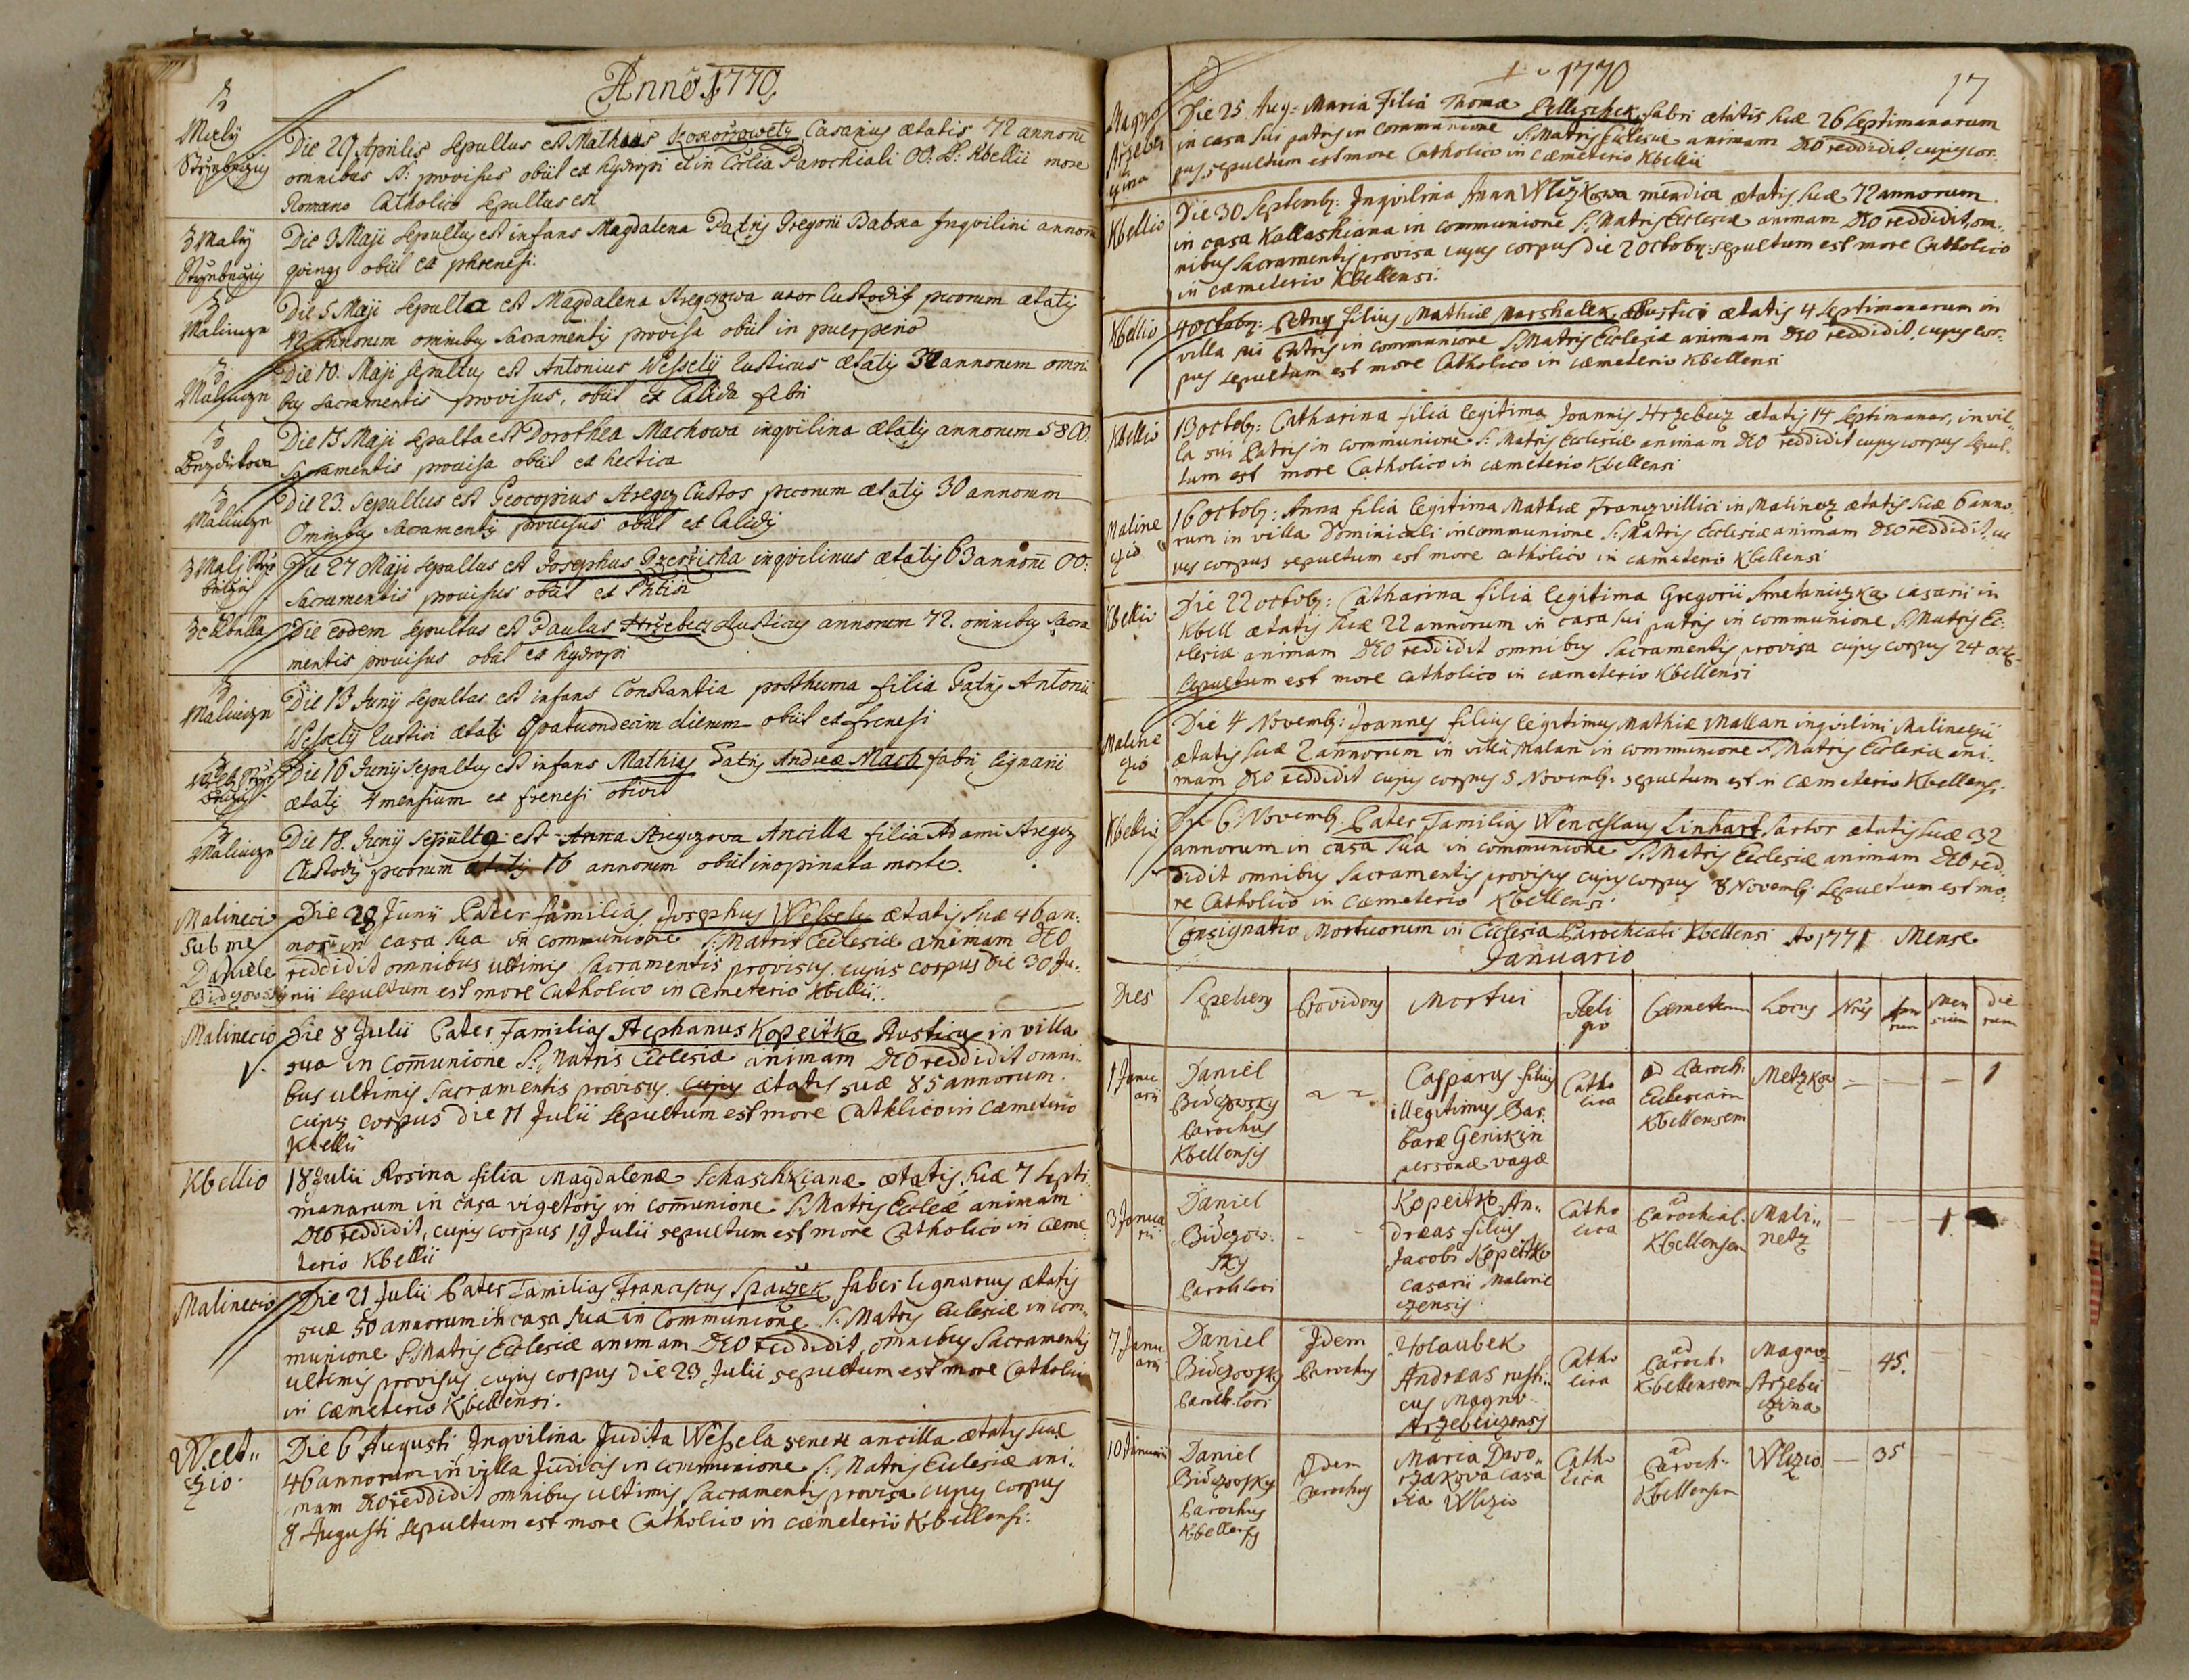 Anno 1770
Z Malý Střzebužij
Die 29 Aprilis sepultus est Mathias Kokorzowetz Casarius ætatis 72 annorū
omnibus S: provisus obiit ex hydropi et in Ecclia Parochiali OO: SS: Kbellii more
Romano Catholico sepultus est
Z Malý
Die 3 Maji sepultus est infans Magdalena Patris Gregorii Babka Inqvilini annorū
qvinq obiit ex phrenesi:
Z Malinczn
Die 5 Maji sepulta est Magdalena Stregczowa uxor Custodis pecorum ætatis
42 annorum omnibus Sacramentis provisa obiit in puerperio
Z Malinczn
Die 10. Maji sepultus est Antonius Wesselij Rusticus ætatis 32 annorum omni
bus Sacramentis provisus, obiit ex Calida febri
Die 15 Maji sepulta est Dorothea Machowa inqvilina ætatis annorum 58 OO:
Sacramentis provisa obiit ex hectica
Z Malinczn
Die 23. Sepultus est Procopius Stregcz Custos pecorum ætatis 30 annorum
Omnibus Sacramentis provisus obiit ex Calidis
Die 27 Maji sepultus est Josephus inqvilinus ætatis 63 annorū OO:
Sacramentis provisus obiit ex Phtisi
Ze Kballa
Die eodem sepultus est Paulus Hržebecz Rusticus annorum 72. omnibus Sacra
mentis provisus obiit ex hydropi
Z Malinczn
Die 13 Junij sepultus est infans Constantia posthuma filia Patris Antonii
Wesselij Rustici ætatis Qvatuordecim dierum obiit ex frenesi
Die 16 Junij sepultus est infans Mathias Patris Andreæ Mach fabri lignarii
ætatis 4 mensium ex frenesi obivit
Z Malinczn
Die 18. Junij Sepulta est Anna Stregczova Ancilla filia Adami Stregcz
Custodis pecorum ætatis 16 annorum obiit inopinata morte.
Malinecio
sub me
Daniele
Bidczowsky
Die 28 Junii Pater familias Josephus Wessely ætatis suæ 46 an:
norū in casa sua in communione S: Matris Ecclesiæ animam DEO
reddidit omnibus ultimis Sacramentis provisus, cujus corpus Die 30 Ju:
nii sepultum est more Catholico in Cæmeterio Kbellii.
Malinecio
Die 8 Julii Pater Familias Stephanus Kopeitko Rusticus in villa
sua in Com̄unione S: Matris Ecclesiæ animam DEO reddidit omni:
bus ultimis Sacramentis provisus. Cujus ætatis suæ 85 annorum.
cujus corpus Die 11 Julii sepultum est more Catholico in Cæmeterio
Kbellii
Kbellio
18 Julii Rosina filia Magdalenæ Schaschkianæ ætatis suæ 7 Septi
manarum in casa vigetoris in com̄unione S: Matris Eccleæ animam
DEO reddidit, cujus corpus 19 Julii sepultum est more Catholico in Cæme
terio Kbellii
Malinecio
Die 21 Julii Pater Familias Franciscus Spaczek faber lignarius ætatis
suæ 50 annorum in casa sua in Communione S: Matris Ecclesiæ in com:
munione S: Matris Ecclesiæ animam DEO reddidit, omnibus Sacramentis
ultimis provisus cujus corpus die 23 Julii sepultum est more Catholico
in cæmeterio Kbellensi.
Welt"
czio.
Die 6 Augusti Inqvilina Judita Wessela senex ancilla ætatis suæ
46 annorum in villa Judicis in communione S: Matris Ecclesiæ ani:
mam DEO reddidit omnibus ultimis Sacramentis provisa cujus corpus
8 Augusti sepultum est more Catholico in cæmeterio Kbellensi:
1770
17
Magno
Arzebei
czina
Die 25 Aug: Maria Filia Thomæ Pellischek, fabri ætatis suæ 26 Septimanarum
in casa sui patris in communione S: Matris Ecclesiæ animam DEO reddidit, cujus cor:
pus sepultum est more Catholico in cæmeterio Kbellii
Kbellio
Die 30 Septemb: Inqvilina Anna Wlczkowa mendica ætatis suæ 72 annorum
in casa Kallashiana in communione S: Matris Ecclesiæ animam DEO reddidit, om:
nibus Sacramentis provisa cujus corpus Die 2 Octob: sepultum est more Catholico
in cæmeterio Kbellensi.
Kbellio
4 Octob: Petrus filius Mathiæ Marshalek, Rustici ætatis 4 Septimanarum in
villa sui Patris in communione S: Matris Ecclesiæ animam DEO reddidit, cujus cor:
pus sepultum est more Catholico in cæmeterio Kbellensi
Kbellio
13 Octob: Catharina filia legitima Joannis Hrzebecz ætatis 14 Septimanar, in vil:
la sui Patris in communione S: Matris Ecclesiæ animam DEO reddidit cujus corpus sepul:
tum est more Catholico in cæmeterio Kbellensi
Maline
czio
16 Octob: Anna filia legitima Mathiæ Francz villici in Malinecz ætatis suæ 6 anno:
rum in villa Dominicali in communione S: Matris Ecclesiæ animam DEO reddidit, cu
jus corpus sepultum est more catholico in cæmeterio Kbellensi
Kbellio
Die 22 Octob: Catharina filia legitima Gregorii Smetaniczka casarii in
Kbell ætatis suæ 22 annorum in casa sui patris in communione S: Matris Ec:
clesiæ animam DEO reddidit omnibus Sacramentis provisa cujus corpus 24 Octb:
Sepultum est more catholico in cæmeterio Kbellensi
Maline
czio
Die 4 Novemb: Joannes filius legitimus Mathiæ Mallan inqvilini Malineczii
ætatis suæ 2 annorum in villa Malan in communione S: Matris Ecclesiæ ani:
mam DEO reddidit cujus corpus 5 Novemb: sepultum est in Cæmeterio Kbellensi.
Kbellio
Die 6: Novemb: Pater Familias Wenceslaus Linhart, Sartor ætatis suæ 32
annorum in casa sua in communione S: Matris Ecclesiæ animam DEO red:
didit omnibus Sacramentis provisus cujus corpus 8 Novemb: sepultum est mo:
re Catholico in Cæmeterio Kbellensi.
Consignatio Mortuorum in Ecclesia Parochiali Kbellensi Ao 1771 Mense
Januario
Dies Sepeliens Providens Mortui Reli gio Cæmeterium Locus Nrus Anno rum Men sium Die rum
1 Janu arii Daniel Bidczovsky Parochus Kbellensis Casparus filius illegitimus Bar: baræ Genikin personæ vagæ Catho lica ad Paroch: Ecclesiam Kbellensem Metzkov — — — 1
3 Janua rii Daniel Bidczow: sky Paroch loci - - Kopeitko An: dreas filius Jacobi Kopeitko casarii Maline czensis Catho lica ad Parochial. Kbellensem Mali" netz - - 1
7 Janu arii Daniel Bidczovsky Paroch: loci Idem Parochus Holaubek Andreas rusti: cus Magno Arzebeiczensis Catho lica ad Paroch: Kbellensem Magno Arzebei czina — 45. — —
10 Januarii Daniel Bidczovsky Parochus Kbellensis Idem Parochus Maria Dwo" rzakova casa ria Wlczio Catho lica ad Paroch: Kbellensem Wlczio — 35 — —